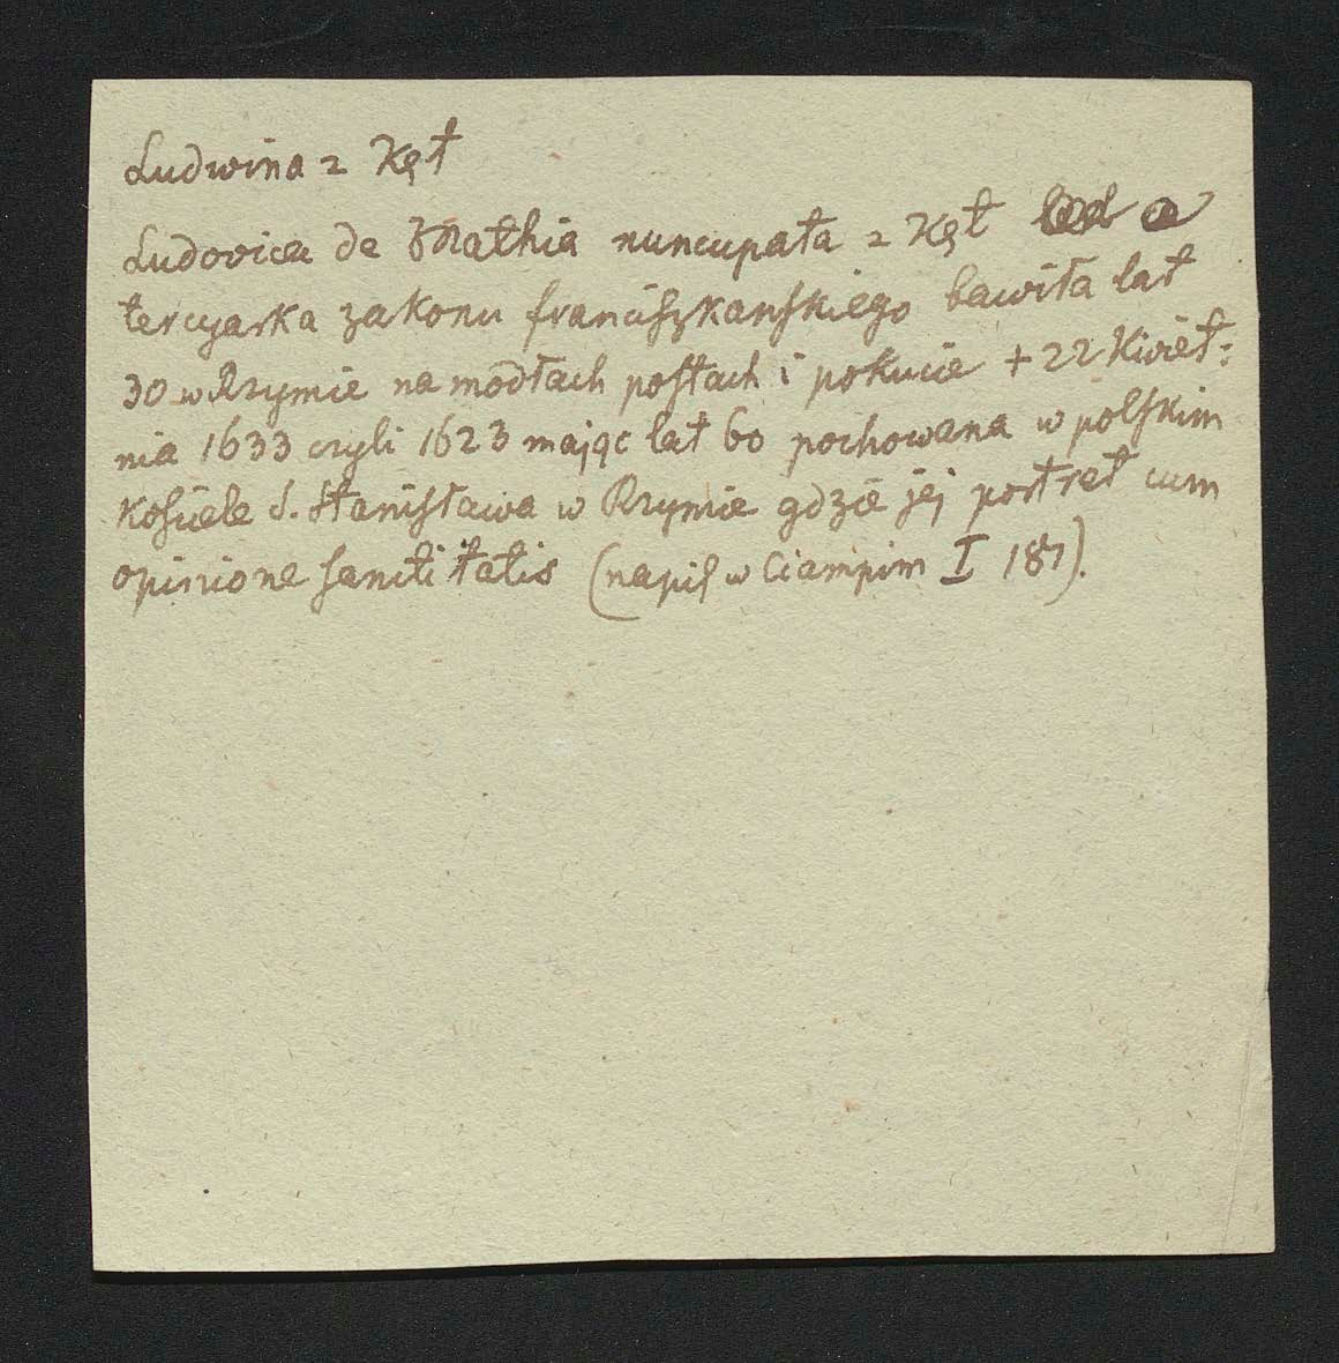 Ludwina z Kęt
Ludovica de Mathia nuncupata z Kęt
tercyarka zakonu franciszkanskiego bawiła lat
30 w Rzymie na modłach postach i pokucie + 22 Kwiet:
nia 1633 czyli 1623 mając lat 60 pochowana w polskim
kościele S. Stanisława w Rzymie gdzie jej portret cum
opinione sanctitatis (napis w Ciampim I 187).